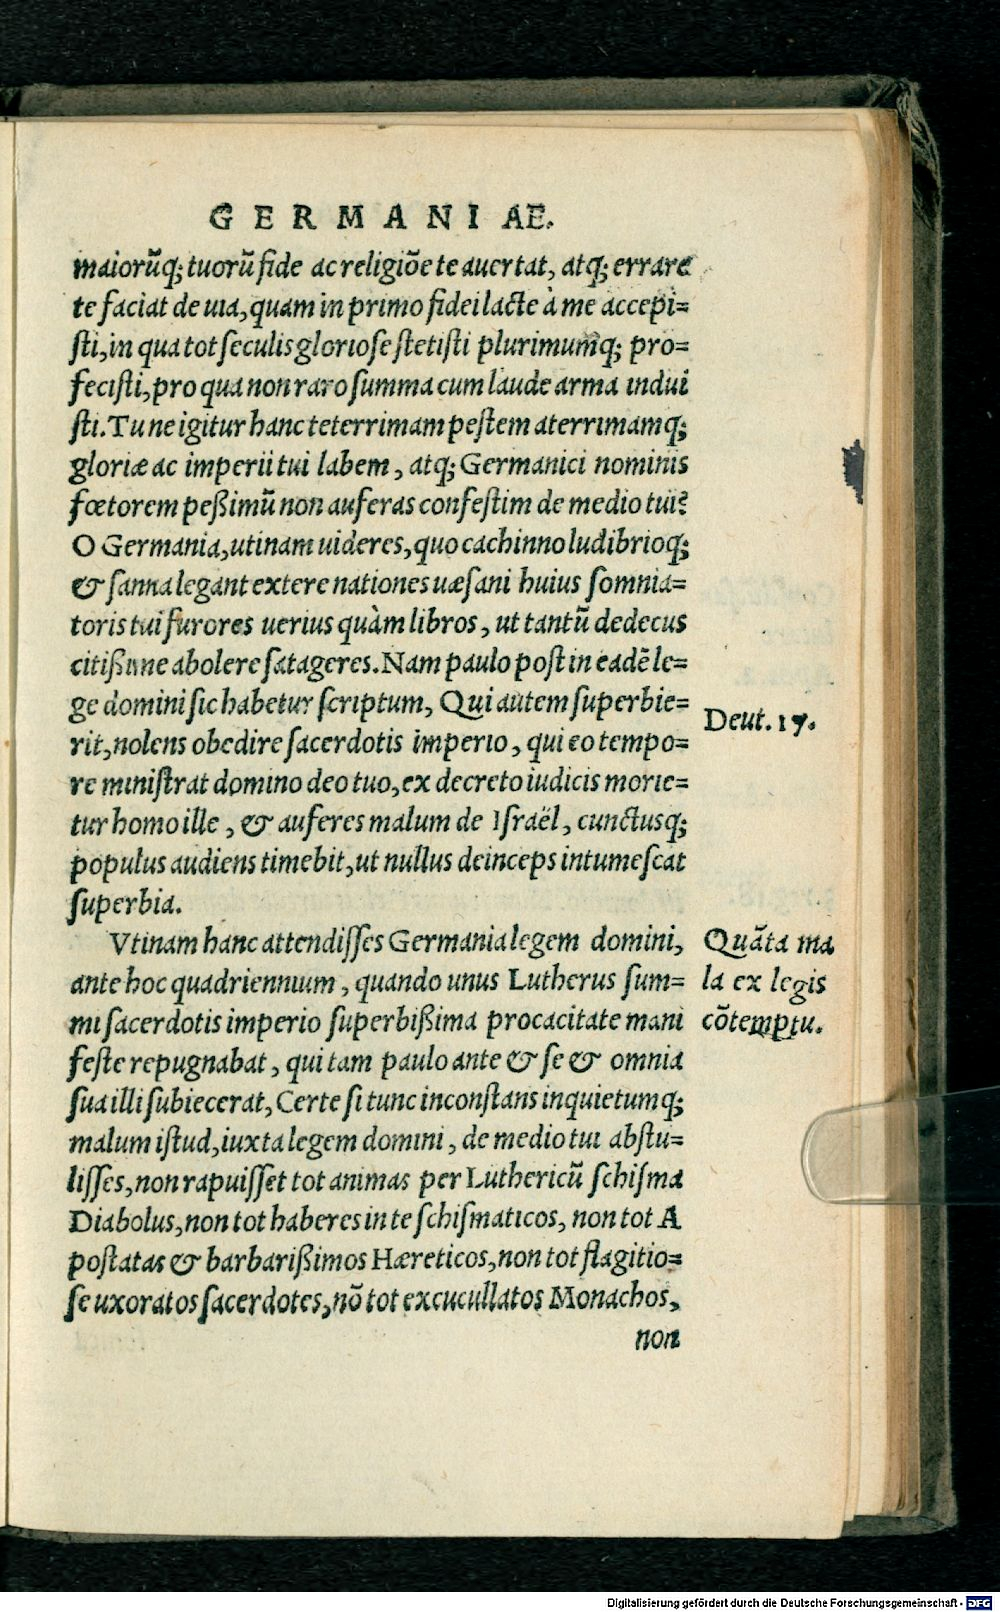 GERMANIAE.
maiorũq; tuorũ fide ac religiõe te auertat, atq; errare
te faciat de uia, quam in primo fidei lacte à me accepi=
sti, in qua tot seculis gloriose stetisti plurimumq; pro=
fecisti, pro qua non raro summa cum laude arma indui
sti. Tu ne igitur hanc teterrimam pestem aterrimamq;
gloriæ ac imperii tui labem, atq; Germanici nominis
fœtorem peßimũ non auferas confestim de medio tui?
O Germania, utinam uideres, quo cachinno ludibrioq;
& sanna legant extere nationes uæsani huius somnia=
toris tui furores uerius quàm libros, ut tantũ dedecus
citißime abolere satageres. Nam paulo post in eadẽ le=
ge domini sic habetur scriptum, Qui autem superbie=
rit, nolens obedire sacerdotis imperio, qui eo tempo=
re ministrat domino deo tuo, ex decreto iudicis morie=
tur homo ille, & auferes malum de Israël, cunctusq;
populus audiens timebit, ut nullus deinceps intumescat
superbia.
Deut. 17.
Vtinam hanc attendisses Germania legem domini,
ante hoc quadriennium, quando unus Lutherus sum=
mi sacerdotis imperio superbißima procacitate mani
feste repugnabat, qui tam paulo ante & se & omnia
sua illi subiecerat, Certe si tunc inconstans inquietumq;
malum istud, iuxta legem domini, de medio tui abstu=
lisses, non rapuisset tot animas per Luthericũ schisma
Diabolus, non tot haberes in te schismaticos, non tot A
postatas & barbarißimos Hæreticos, non tot flagitio=
se uxoratos sacerdotes, nõ tot excucullatos Monachos,
non
Quãta ma
la ex legis
cõtemptu.
Digitalisierung gefördert durch die Deutsche Forschungsgemeinschaft - DFG